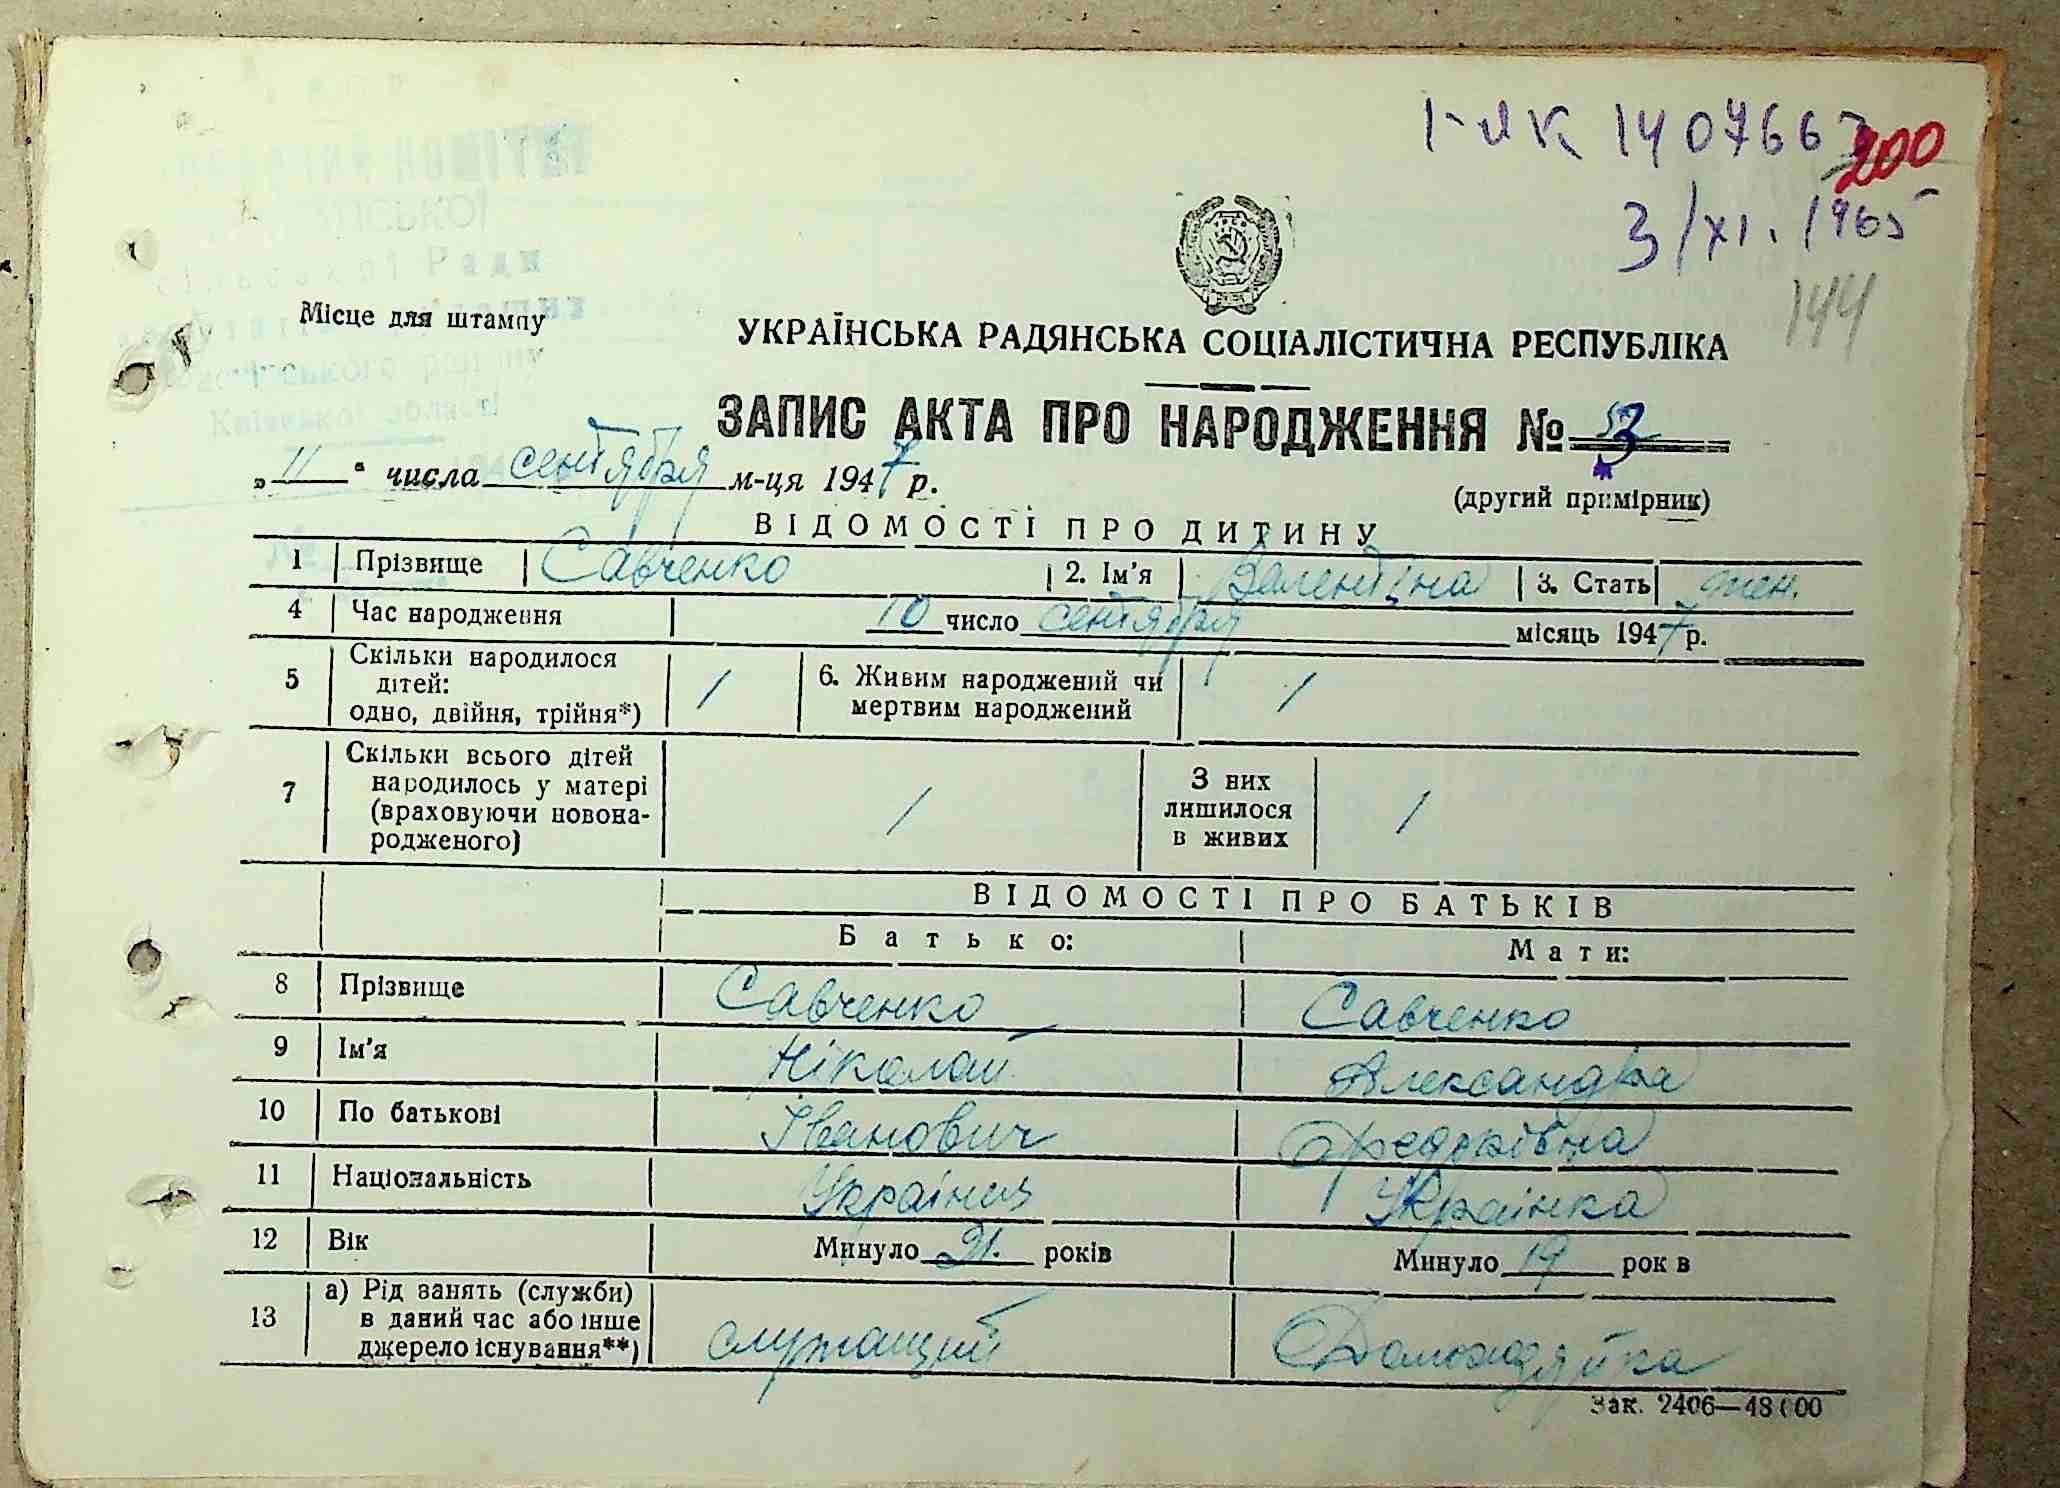 І-ЯК 1407667
200
3/XI. 1965
144
Місце для штампу
УКРАЇНСЬКА РАДЯНСЬКА СОЦІАЛІСТИЧНА РЕСПУБЛІКА
ЗАПИС АКТА ПРО НАРОДЖЕННЯ №
„ 11 “ числа сентября м-ця 1947 р.
(другий примірник)
ВІДОМОСТІ ПРО ДИТИНУ
1 Прізвище Савченко 2. Ім'я Валентіна 3. Стать жен.
4 Час народження 10 число сентября місяць 1947 р.
5 Скільки народилося дітей: одно, двійня, трійня*) 1 6. Живим народжений чи мертвим народжений 1
7 Скільки всього дітей народилось у матері (враховуючи новона-родженого) 1 З них лишилося в живих 1
ВІДОМОСТІ ПРО БАТЬКІВ
Батько: Мати:
8 Прізвище Савченко Савченко
9 Ім'я Ніколай Александра
10 По батькові Іванович
11 Національність Українц Українка
12 Вік Минуло 21. років Минуло 19 рок в
13 а) Рід занять (служби) в даний час або інше джерело існування**) служащий Домохазяйка
Зак. 2406—48000